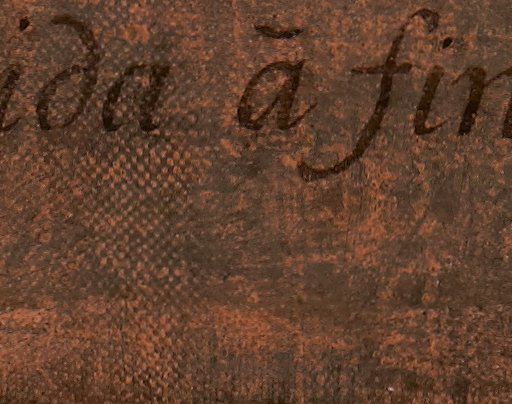 ida ã fin